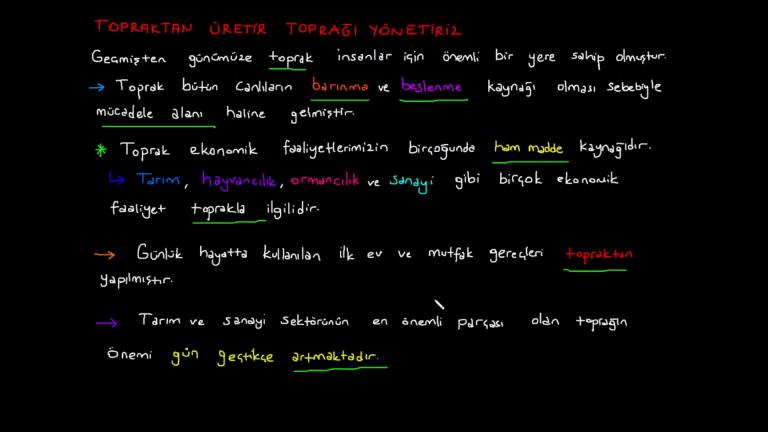 TOPRAKTAN ÜRETİR TOPRAĞI YÖNETİRİZ
Geçmişten günümüze toprak insanlar için önemli bir yere sahip olmuştur.
→ Toprak bütün canlıların barınma ve beslenme kaynağı olması sebebiyle
mücadele alanı haline gelmiştir.
* Toprak ekonomik faaliyetlerimizin birçoğunda ham madde kaynağıdır.
↳ Tarım, hayvancılık, ormancılık ve sanayi gibi birçok ekonomik
faaliyet toprakla ilgilidir.
→ Günlük hayatta kullanılan ilk ev ve mutfak gereçleri topraktan
yapılmıştır.
→ Tarım ve sanayi sektörünün en önemli parçası olan toprağın
önemi gün geçtikçe artmaktadır.